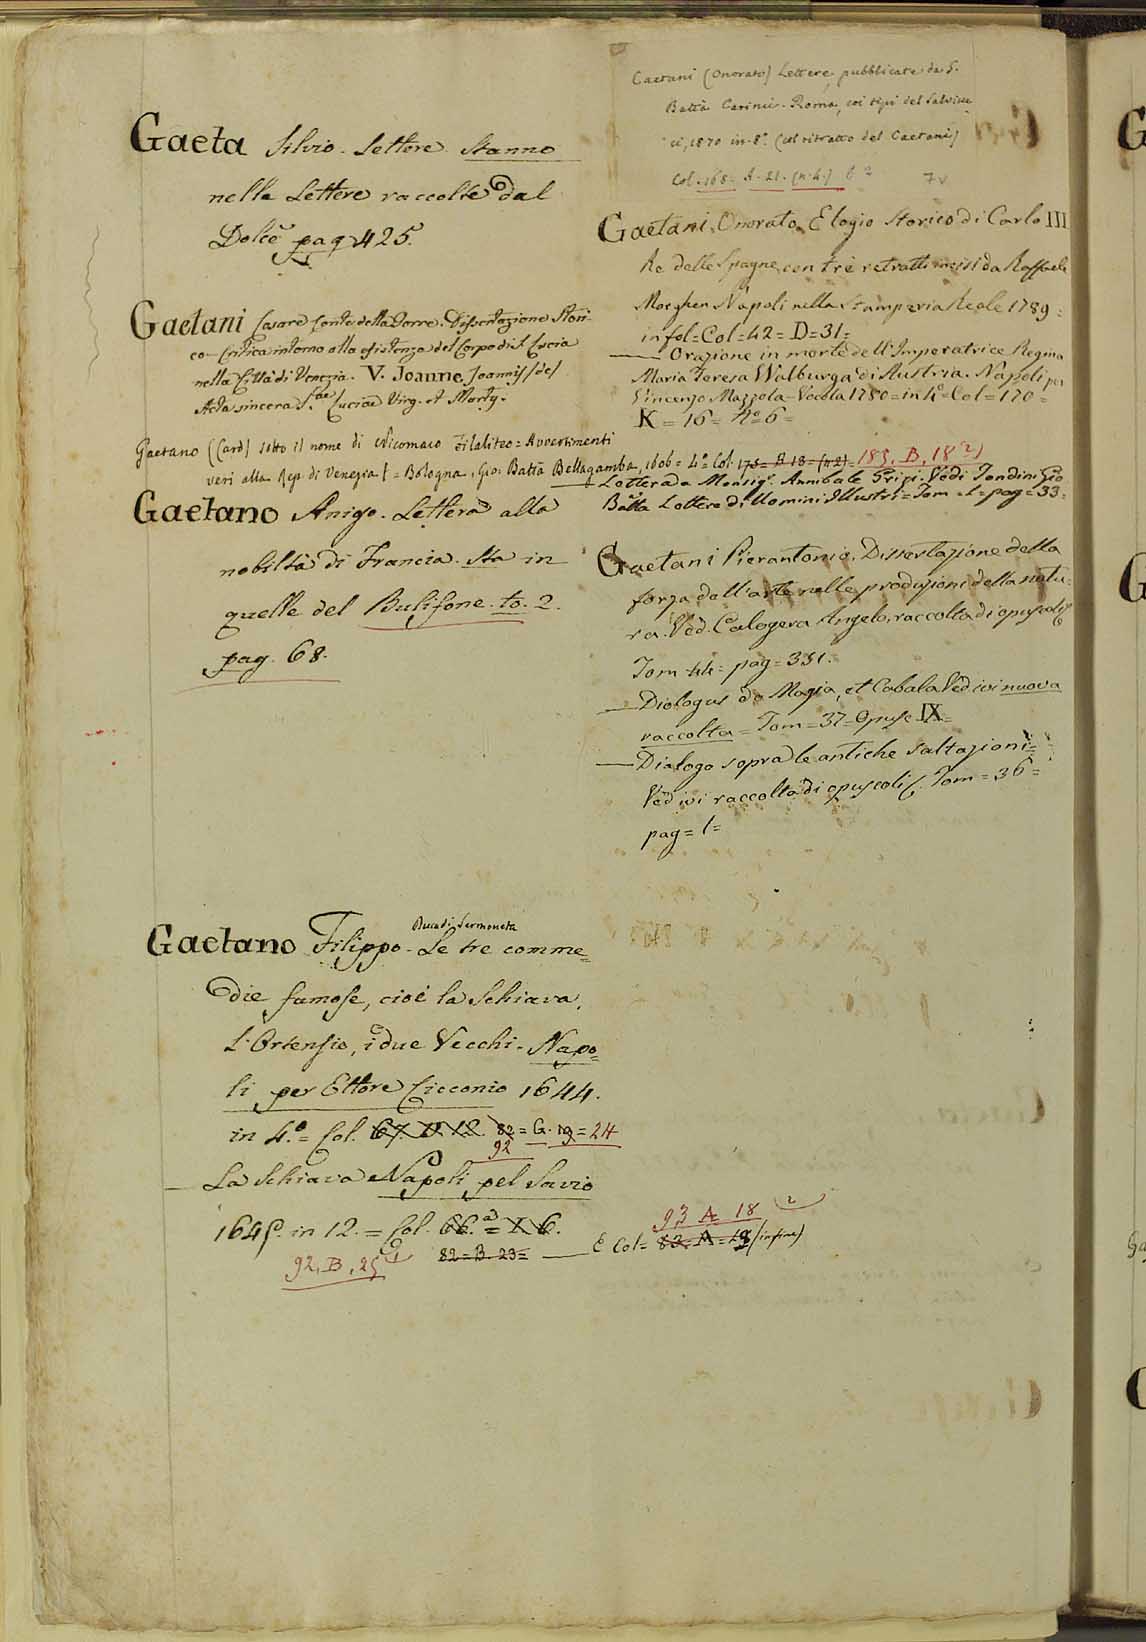 Gaeta Silvio. Lettere. Stanno
nelle Lettere raccolte dal
Dolce pag 425.
Gaetani Cesare Conte della Torre. Dissertazione Stori-
co-Critica intorno alla esistenza del Corpo di S. Lucia
nella Città di Venezia. V. Joanne Joannis (de)
Acta sincera S.ae Luciae Virg. et Marty.
Gaetano (Card) sotto il nome di Nicomaco Filaliteo = Avvertimenti
veri alla Rep. di Venezia = Bologna, Gio: Batta Bellagamba, 1606 = 4.o Col. 175 = B 18 = (n 2) = 185, B, 18 2)
Gaetano Anigo. Lettera alla
nobiltà di Francia. Sta in
quelle del Bulifone. to. 2.
pag. 68.
Gaetano Filippo Duca di Sermoneta - Le tre comme=
die famose, cioè la Schiava,
L'Ortensio, i due Vecchi - Napo=
li per Ettore Cicconio 1644.
in 4.o = Col. 67. 12. 82 = G. 19 = 24
92
— La Schiava Napoli pel Savio
1645. in 12. = Col. 66. = I. 6.
92, B, 25 82 = B. 23 = — E Col = 82 = A = 18 (infine)
93 A 18 2
Caetani (Onorato) Lettere, pubblicate da G.
Batta Carinci. Roma, coi tipi del Salviuc
ci, 1870 in-8.o (col ritratto del Caetani)
Col. 168. A. 21. (n. 4.) 6 2
Gaetani, Onorato. Elogio Storico di Carlo III
Re delle Spagne, con tre ritratti incisi da Raffaele
Morghen Napoli nella Stamperia Reale 1789 =
in fol = Col = 42 = D = 31 =
— Orazione in morte dell'Imperatrice Regina
Maria Teresa Walburga di Austria. Napoli per
Vincenzo Mazzola-Vocola 1780 = in 4.o Col = 170 =
K = 16 = No 6 =
— Lettera a Monsigr. Annibale Vedi Tondini Gio
Batta Lettere di Uomini Illustri = Tom = 1 = pag = 33 =
Gaetani Pierantonio. Dissertazione della
forza dell'arte nelle produzioni della natu=
ra. Ved. Calogera Angelo, raccolta di opuscoli
Tom 44 = pag = 331.
— Dialogus de Magia, et Cabala Ved ivi nuova
raccolta = Tom = 37 = Opusc IX =
— Dialogo sopra le antiche saltazioni =
Ved ivi raccolta di opuscoli. Tom = 36 =
pag = 1 =